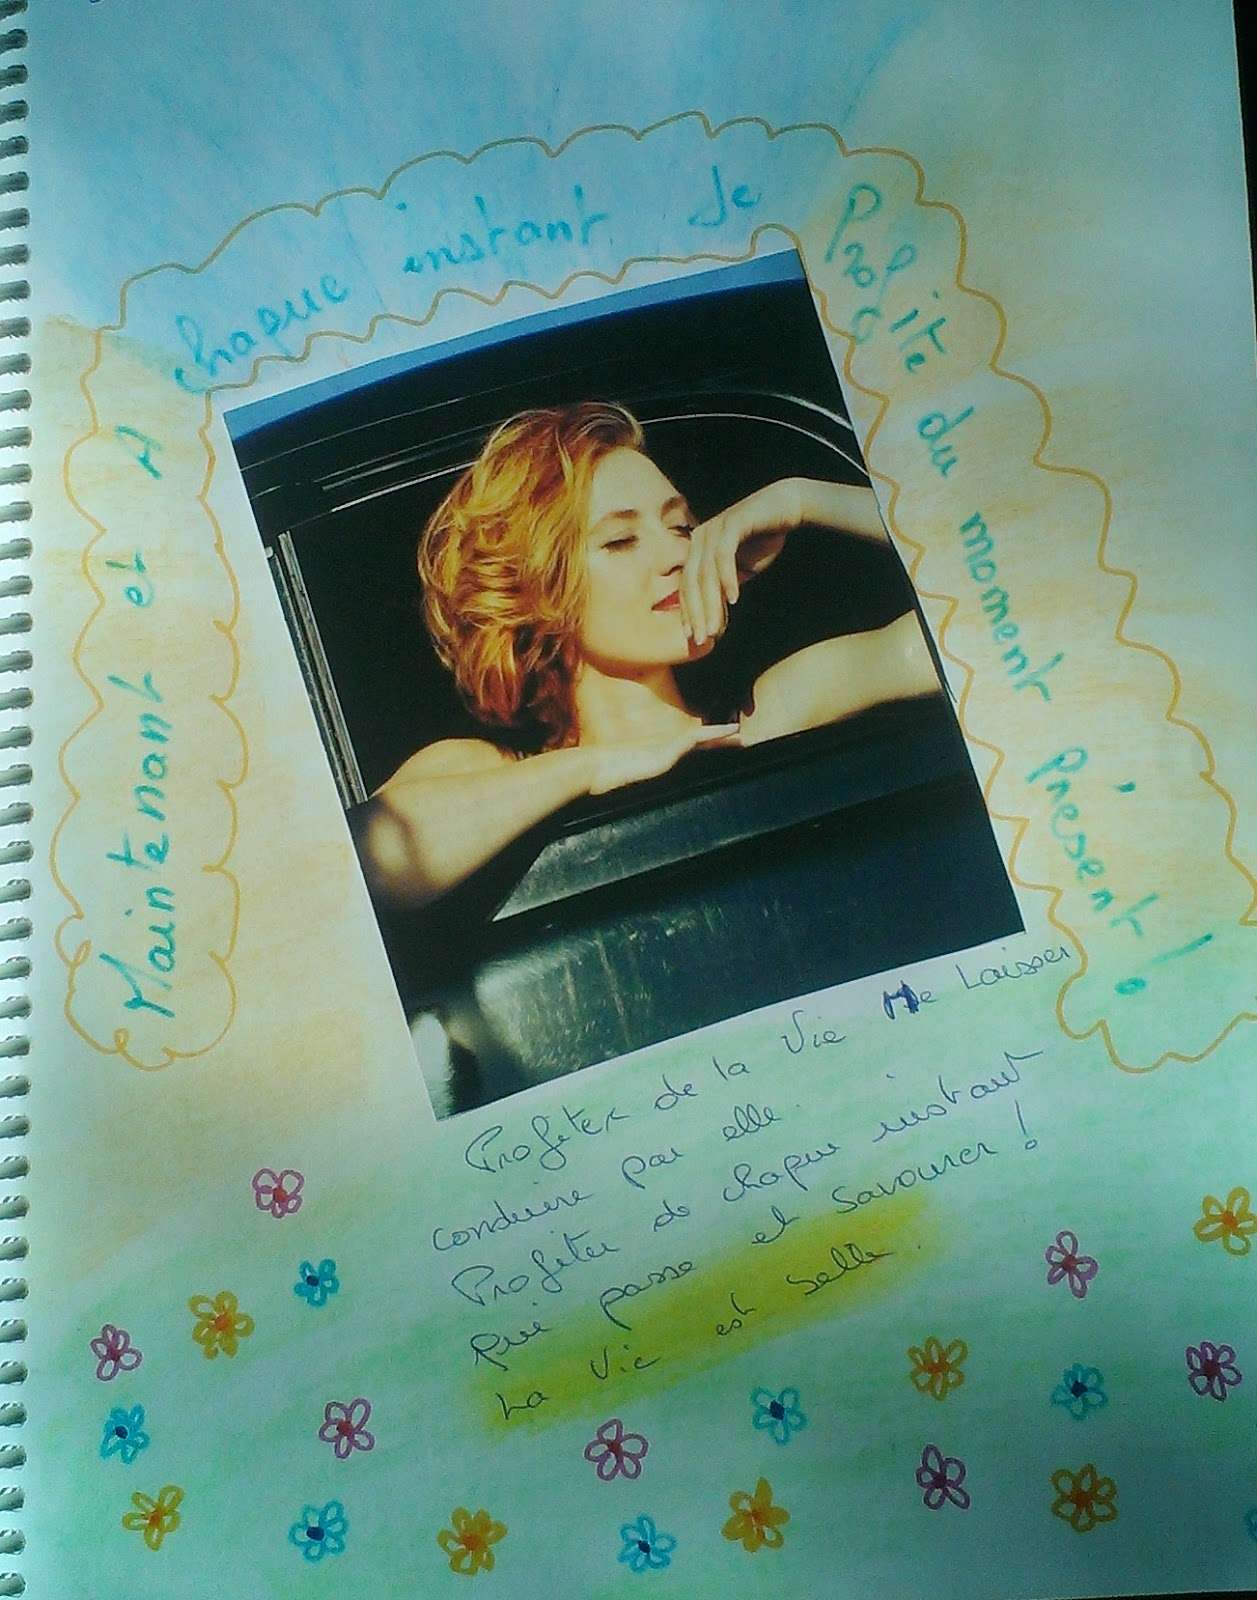 Maintenant et A chaque instant Je Profite du moment présent !
Profiter de la Vie Me Laisser
conduire par elle.
Profiter de chaque instant
qui passe et Savourer !
La Vie est belle.